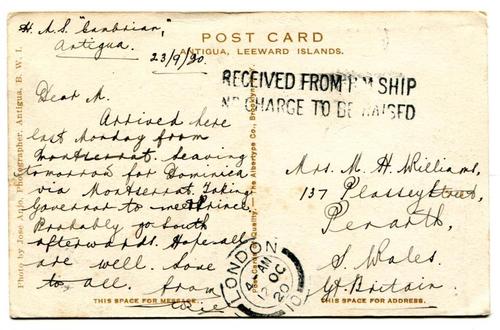 H.M.S. "Cambrian",
Antigua.
23/9/20.
POST CARD
ANTIGUA, LEEWARD ISLANDS.
RECEIVED FROM H M SHIP
NO CHARGE TO BE RAISED
Dear M.
Arrived here
last Monday from
Montserrat. Leaving
tomorrow for Dominica
via Montserrat. Taking
Governor to meet Prince.
Probably go South
afterwards. Hope all
are well. Love
to all. From
THIS SPACE FOR MESSAGE.
Mrs. M. H. Williams,
137 Plassey Street,
Penarth,
S. Wales.
Gt Britain.
THIS SPACE FOR ADDRESS.
LONDON
4 - AM
12 OC
20
Photo by Jose Anjo, Photographer, Antigua, B. W. I.
Post Cards of Quality. — The Albertype Co., Brooklyn, N. Y.